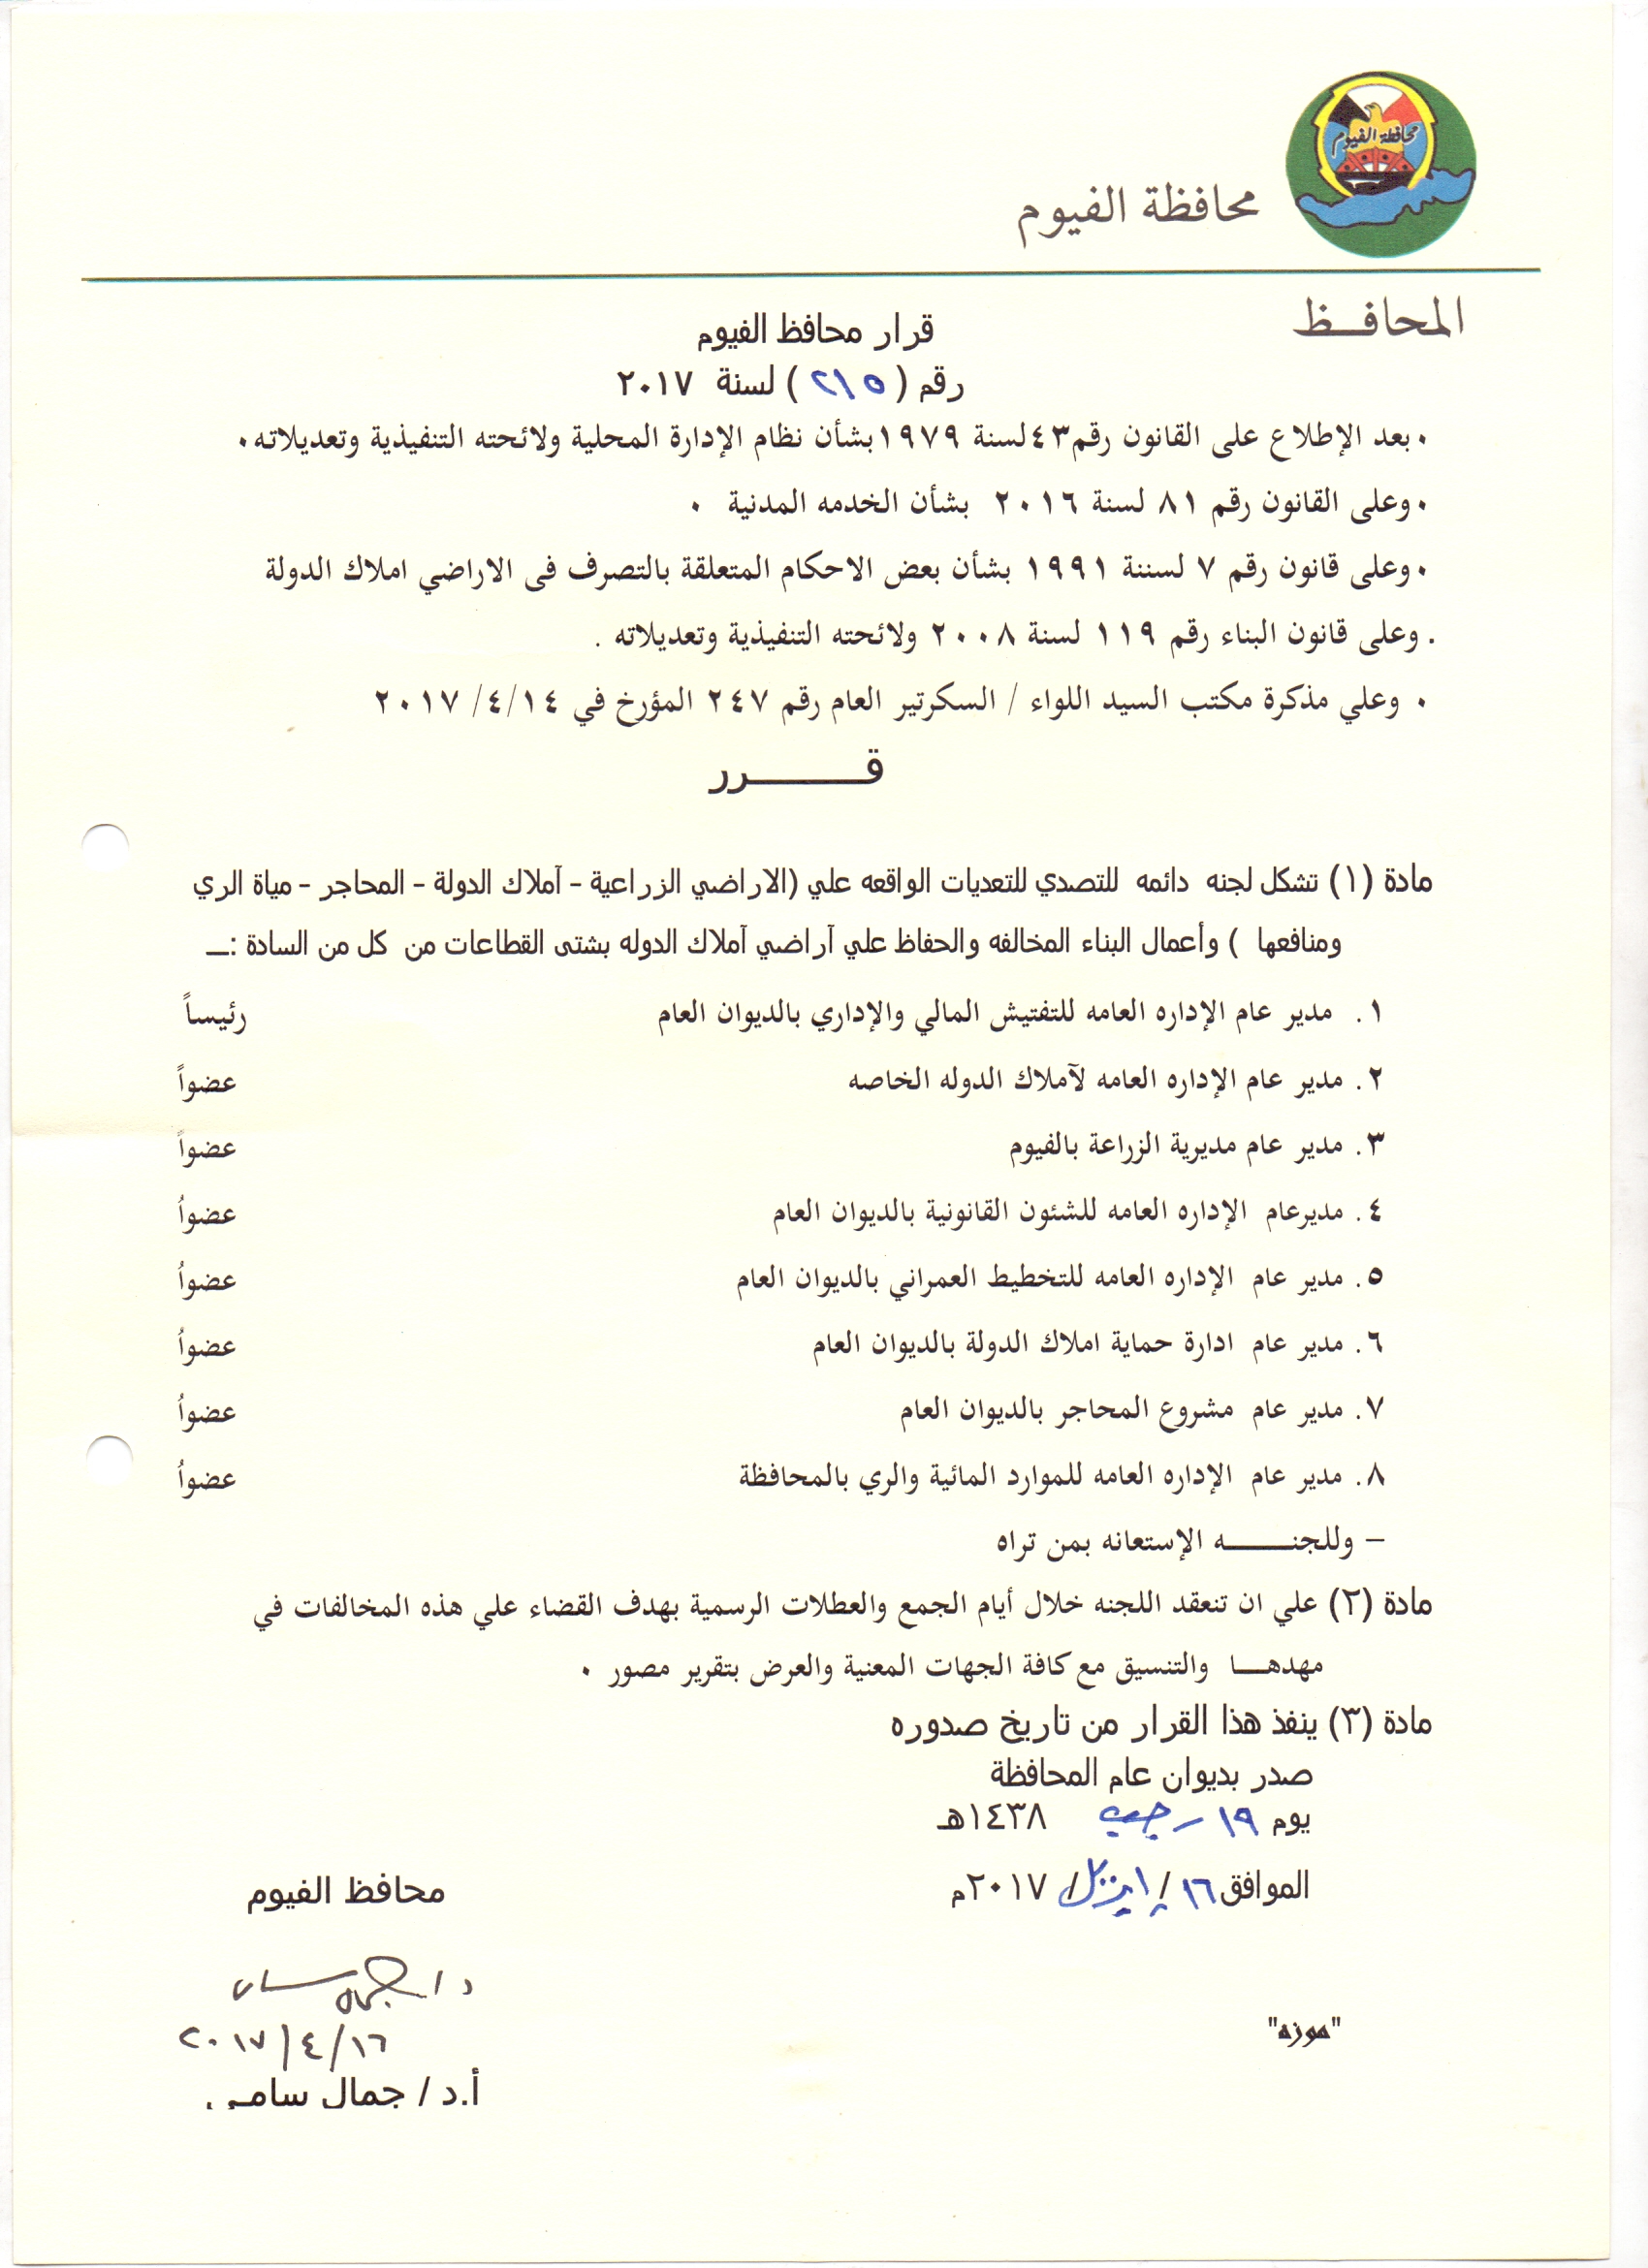 محافظة الفيوم
محافظة الفيوم
المحافـــظ
قرار محافظ الفيوم
رقم ( ٢١٥ ) لسنة ٢٠١٧
٠ بعد الإطلاع على القانون رقم٤٣لسنة ١٩٧٩بشأن نظام الإدارة المحلية ولائحته التنفيذية وتعديلاته٠
٠ وعلى القانون رقم ٨١ لسنة ٢٠١٦ بشأن الخدمه المدنية ٠
٠ وعلى قانون رقم ٧ لسننة ١٩٩١ بشأن بعض الاحكام المتعلقة بالتصرف فى الاراضي املاك الدولة
. وعلى قانون البناء رقم ١١٩ لسنة ٢٠٠٨ ولائحته التنفيذية وتعديلاته .
٠ وعلي مذكرة مكتب السيد اللواء / السكرتير العام رقم ٢٤٧ المؤرخ في ١٤/٤/ ٢٠١٧
قــــــــرر
مادة (١) تشكل لجنه دائمه للتصدي للتعديات الواقعه علي (الاراضي الزراعية - آملاك الدولة - المحاجر - مياة الري
ومنافعها ) وأعمال البناء المخالفه والحفاظ علي آراضي آملاك الدوله بشتى القطاعات من كل من السادة :ــ
١. مدير عام الإداره العامه للتفتيش المالي والإداري بالديوان العام رئيساً
٢. مدير عام الإداره العامه لآملاك الدوله الخاصه عضواً
٣. مدير عام مديرية الزراعة بالفيوم عضواً
٤. مديرعام الإداره العامه للشئون القانونية بالديوان العام عضواُ
٥. مدير عام الإداره العامه للتخطيط العمراني بالديوان العام عضواُ
٦. مدير عام ادارة حماية املاك الدولة بالديوان العام عضواُ
٧. مدير عام مشروع المحاجر بالديوان العام عضواُ
٨. مدير عام الإداره العامه للموارد المائية والري بالمحافظة عضواُ
– وللجنـــــــه الإستعانه بمن تراه
مادة (٢) علي ان تنعقد اللجنه خلال أيام الجمع والعطلات الرسمية بهدف القضاء علي هذه المخالفات في
مهدهـــا والتنسيق مع كافة الجهات المعنية والعرض بتقرير مصور ٠
مادة (٣) ينفذ هذا القرار من تاريخ صدوره
صدر بديوان عام المحافظة
يوم ١٩ رجب ١٤٣٨هـ
الموافق ١٦ / ابريل / ٢٠١٧م
محافظ الفيوم
١٦/٤/٢٠١٧
"موزه"
أ.د / جمال سامي